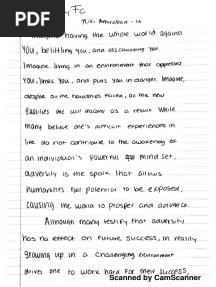 PDF
Fc
having the whole world against
you, belittling you, and discounting you.
Imagine living in an environment that oppresses
you, limits you, and puts you in danger. Imagine,
despite all the hardships faced, all the new
qualities one will acquire as a result. While
many believe one's difficult experiences in
life do not contribute to the awakening of
an individual's powerful mind set,
adversity is the spark that allows
humanities full potential to be exposed,
causing the world to prosper and advance.
Although many testify that adversity
has no effect on future success, in reality
growing up in a challenging environment
drives one to work hard for their success,
Scanned by CamScanner